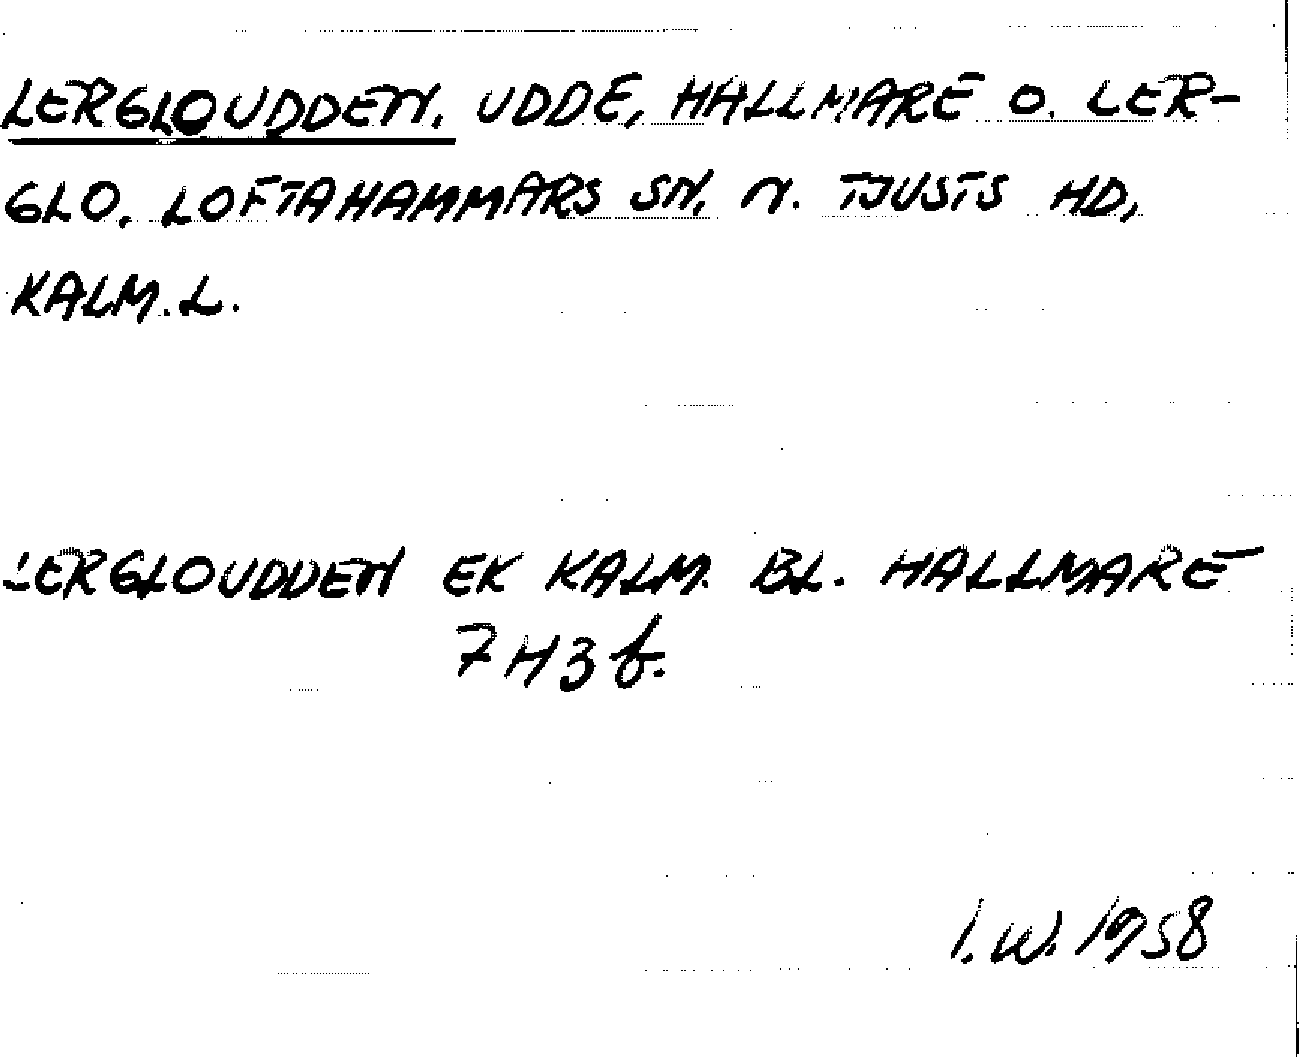 LERGLOUDDEN, UDDE, HALLMARE O. LER-
GLO, LOFTAHAMMARS SN, N. TJUSTS HD,
KALM.L.
LERGLOUDDEN EK KALM. BL. HALLMARE
7H3b.
I.W. 1958